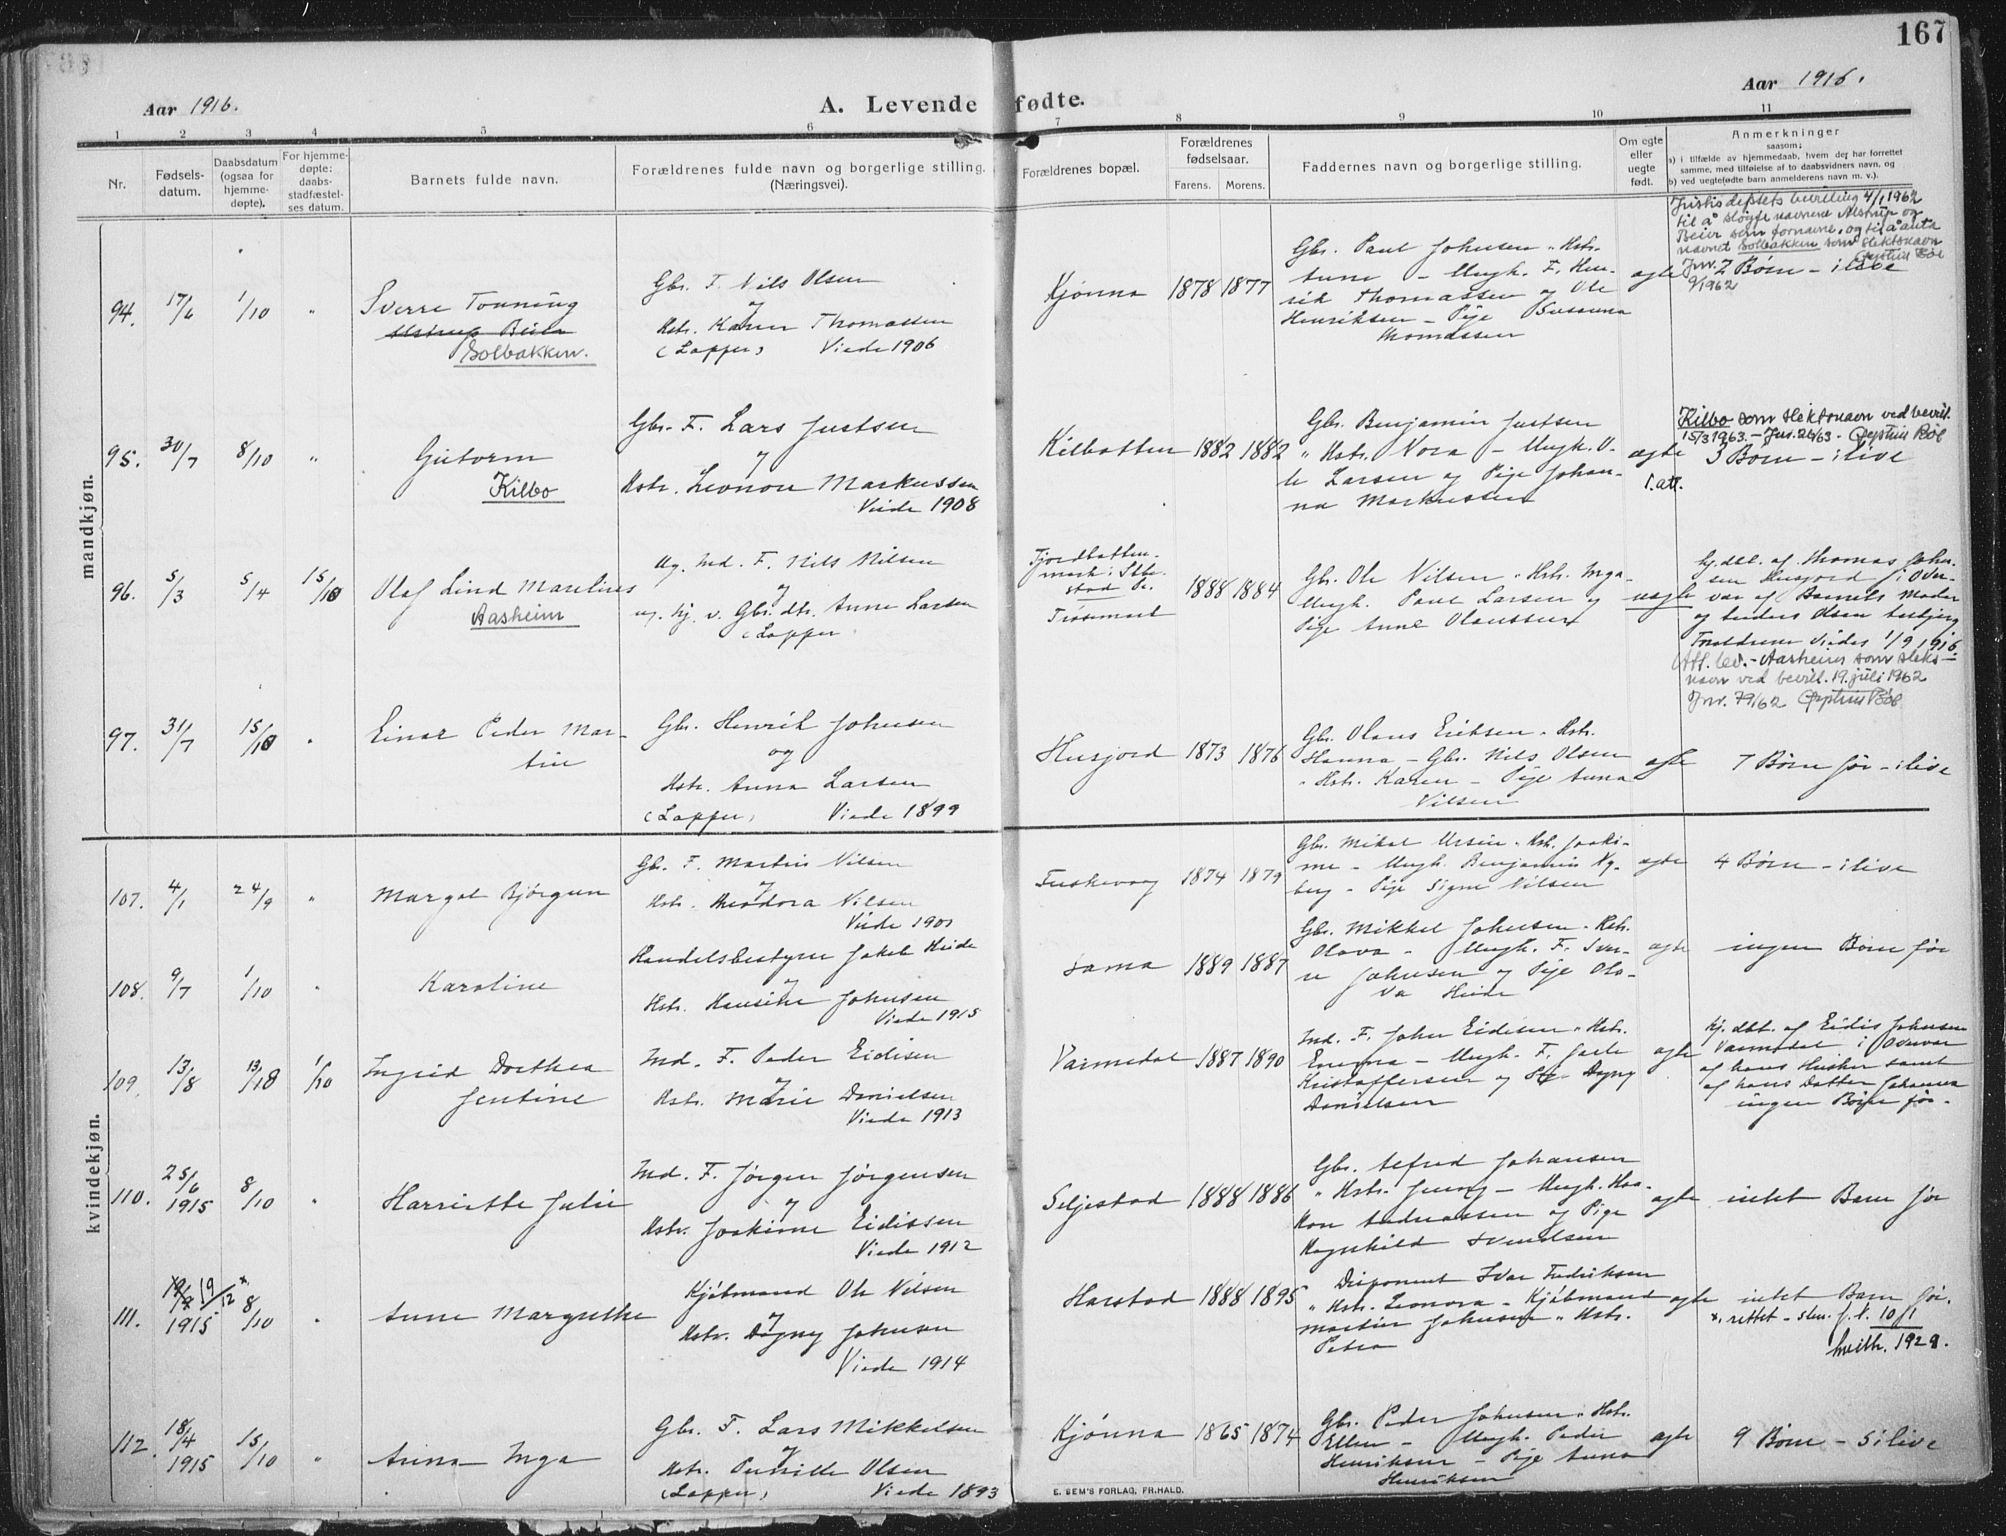 167
Aar 1916.
A. Levende fødte.
Aar 1916.
1 2 3 4 5 6 7 8 9 10 11
Nr.
Fødsels-
datum.
Daabsdatum
(ogsaa for
hjemme-
døpte).
For hjemme-
døpte:
daabs-
stadfæstel-
ses datum.
Barnets fulde navn.
Forældrenes fulde navn og borgerlige stilling.
(Næringsvei).
Forældrenes bopæl.
Forældrenes
fødselsaar.
Farens. Morens.
Faddernes navn og borgerlige stilling.
Om egte
eller
uegte
født.
Anmerkninger
saasom;
a) i tilfælde av hjemmedaab, hvem der har forrettet
samme, med tilføielse af to daabsvidners navn, og
b) ved uegtefødte barn anmelderens navn m. v.).
mandkjøn.
94. 17/6 1/10 "
Sverre Tonning
Solbakken.
Gbr. F. Nils Olsen
og
Hstr. Karen Thomassen
(Lapper) Viede 1906
Kjønna 1878 1877
Gbr. Paul Johnsen " Hstr.
Anne - Ungk. F. Hen-
rik Thomassen og Ole
Henriksen - Pige Susanna
Thomassen
ægte
Justisdeptets bevilling 4/1 1962
til å sløyfe navnene Alstrup og
Beier som fornavne, og til å anta
navnet Solbakken som slektsnavn
Jnr. 2 Børn - ilive
9/1962
95. 30/7 8/10 "
Gutorm
Kilbo
Gbr. F. Lars Justsen
og
Hstr. Leonore Markussen
Viede 1908
Kilbotten 1882 1882
Gbr. Benjamin Justsen
" Hstr. Nora - Ungk. O-
le Larsen og Pige Johan-
na Markussen
ægte
1. att.
Kilbo som slektsnavn ved bevill.
15/3 1963. -
3 Børn - ilive
96. 5/3 5/4 15/10
Olaf Lind Marelius
Aasheim
Ug. Ind. F. Nils Nilsen
og
ug. hj. v. Gbr. dtr. Anne Larsen
(Lapper
1888 1884
Gbr. Ole Nilsen " Hstr. Inga -
Ungk. Paul Larsen og
Pige Anne Olaussen
uægte
hj. dbt. af Thomas John-
sen Husjord i Over-
vær af Barnets Moder
og Anders Olsen
Forældrene Viedes 1/9 1916.
Att. lev. - Aasheim som slekts-
navn ved bevill. 19. juli 1962
Jnr. 79/62
97. 31/7 15/10 "
Einar Peder Mar-
tin
Gbr. Henrik Johnsen
og
Hstr. Anna Larsen
(Lapper) Viede 1899
Husjord 1873 1876
Gbr. Olaus Eriksen " Hstr.
Hanna - Gbr. Nils Olsen
" Hstr. Karen - Pige Anna
Nilsen
ægte
7 Børn før - ilive
kvindekjøn.
107. 4/1 24/9 "
Margot Bjørgun
Gb. F. Martin Nilsen
og
Hstr. Theodora Nilsen
Viede 1901
Fuskevaag 1874 1879
Gbr. Mikal Ursin " Hstr. Joaki-
me - Ungk. Benjamin Ny-
berg - Pige Signe Nilsen
ægte
4 Børn - ilive
108. 9/7 1/10 "
Karoline
Handelsbestyrer Jakob Heide
og
Hstr. Hansine Johnsen
Viede 1915
Sama 1889 1887
Gbr. Mikkel Johnsen " Hstr.
Olava - Ungk. F. Iver-
Johnsen og Pige Ola-
va Heide
ægte
ingen Børn før
109. 13/8 13/8 1/10
Ingrid Dorthea
Jentine
Ind. F. Peder Eidisen
og
Hstr. Marie Danielsen
Viede 1913
Varmedal 1887 1890
Ind. F. Johan Eidisen " Hstr.
Enevra - Ungk. F. Jarle
Kristoffersen og Pige Dagny
Danielsen
ægte
Hj. dbt. af Eidis Johnsen
Varmedal i Overvær
af hans Hustru samt
af hans Datter Johanna
ingen Børn før -
110. 25/6 1915 8/10 "
Harriette Julie
Ind. F. Jørgen Jørgensen
og
Hstr. Joakime Eidissen
Viede 1912
Seljestad 1888 1886
Gbr. Alfred Johansen
" Hstr. Jenny - Ungk. Haa-
kon Andreassen og Pige
Ragnhild Svendsen
ægte
intet Barn før
111. 19/12 x 1915 8/10 "
Anne Margrethe
Kjøbmand Ole Nilsen
og
Hstr. Dagny Johnsen
Viede 1914
Harstad 1888 1895
Disponent Ivar Fredriksen
" Hstr. Leonora - Kjøbmand
Martin Johnsen " Hstr.
Petra
ægte
intet Barn før.
x. rettet - skr. f. k. 10/1
1929.
112. 18/4 1915 15/10 "
Anna Inga
Gbr. F. Lars Mikkelsen
og
Hstr. Pernille Olsen
(Lapper) Viede 1893
Kjønna 1865 1874
Gbr. Peder Johnsen " Hstr.
Ellen - Ungk. Peder
Henriksen - Pige Anna
Henriksen
ægte
9 Børn - 5 ilive
E. SEM'S FORLAG, FR.HALD.